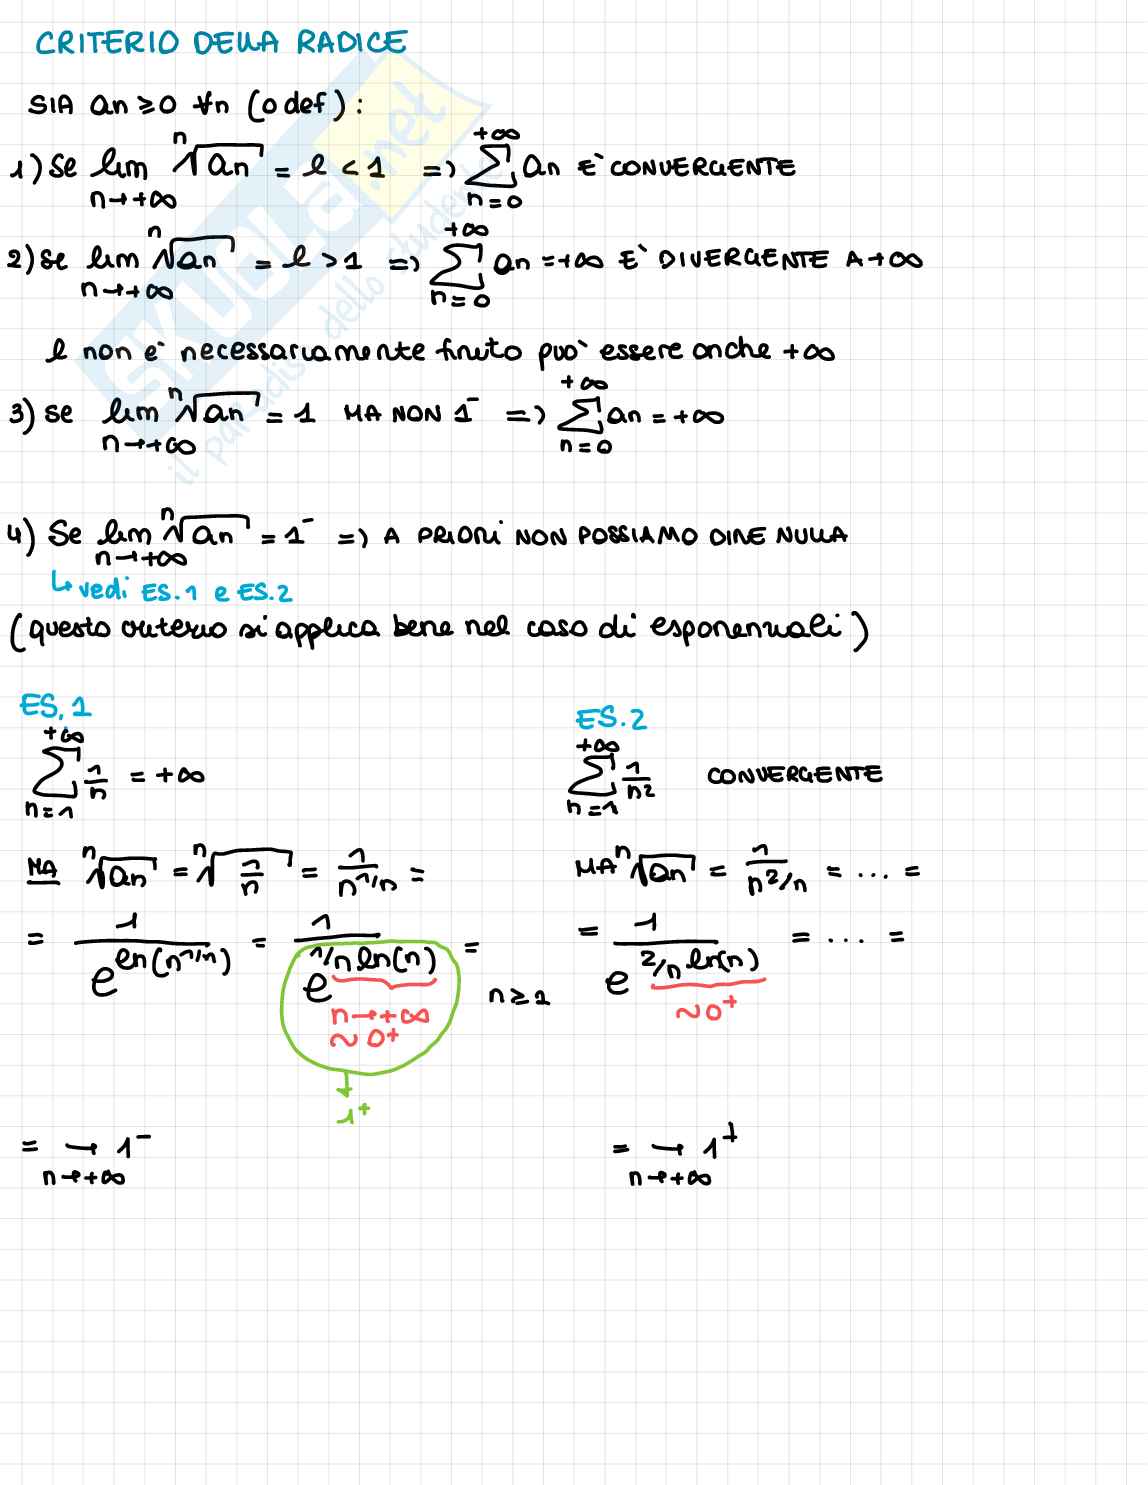 CRITERIO DELLA RADICE
SIA an ≥ 0 ∀n (o def):
1) Se lim n→+∞ ⁿ√an = l < 1 => +∞ Σ n=0 an E' CONVERGENTE
2) Se lim n→+∞ ⁿ√an = l > 1 => +∞ Σ n=0 an = +∞ E' DIVERGENTE A +∞
l non e' necessariamente finito puo' essere anche +∞
3) Se lim n→+∞ ⁿ√an = 1 MA NON 1⁻ => +∞ Σ n=0 an = +∞
4) Se lim n→+∞ ⁿ√an = 1⁻ => A PRIORI NON POSSIAMO DIRE NULLA
↳ vedi ES.1 e ES.2
(questo criterio si applica bene nel caso di esponenziali)
ES.1
+∞ Σ n=1 1/n = +∞
MA ⁿ√an = ⁿ√1/n = 1/n^1/n =
= 1/e^ln(n^1/n) = 1/e^1/n ln(n) = n ≥ 1
n→+∞
~ 0⁺
1⁺
= → 1⁻
n→+∞
ES.2
+∞ Σ n=1 1/n² CONVERGENTE
MA ⁿ√an = 1/n^2/n = ... =
= 1/e^2/n ln(n) = .... =
~ 0⁺
= → 1⁺
n→+∞
SKUOLA.net
il paradiso dello studente